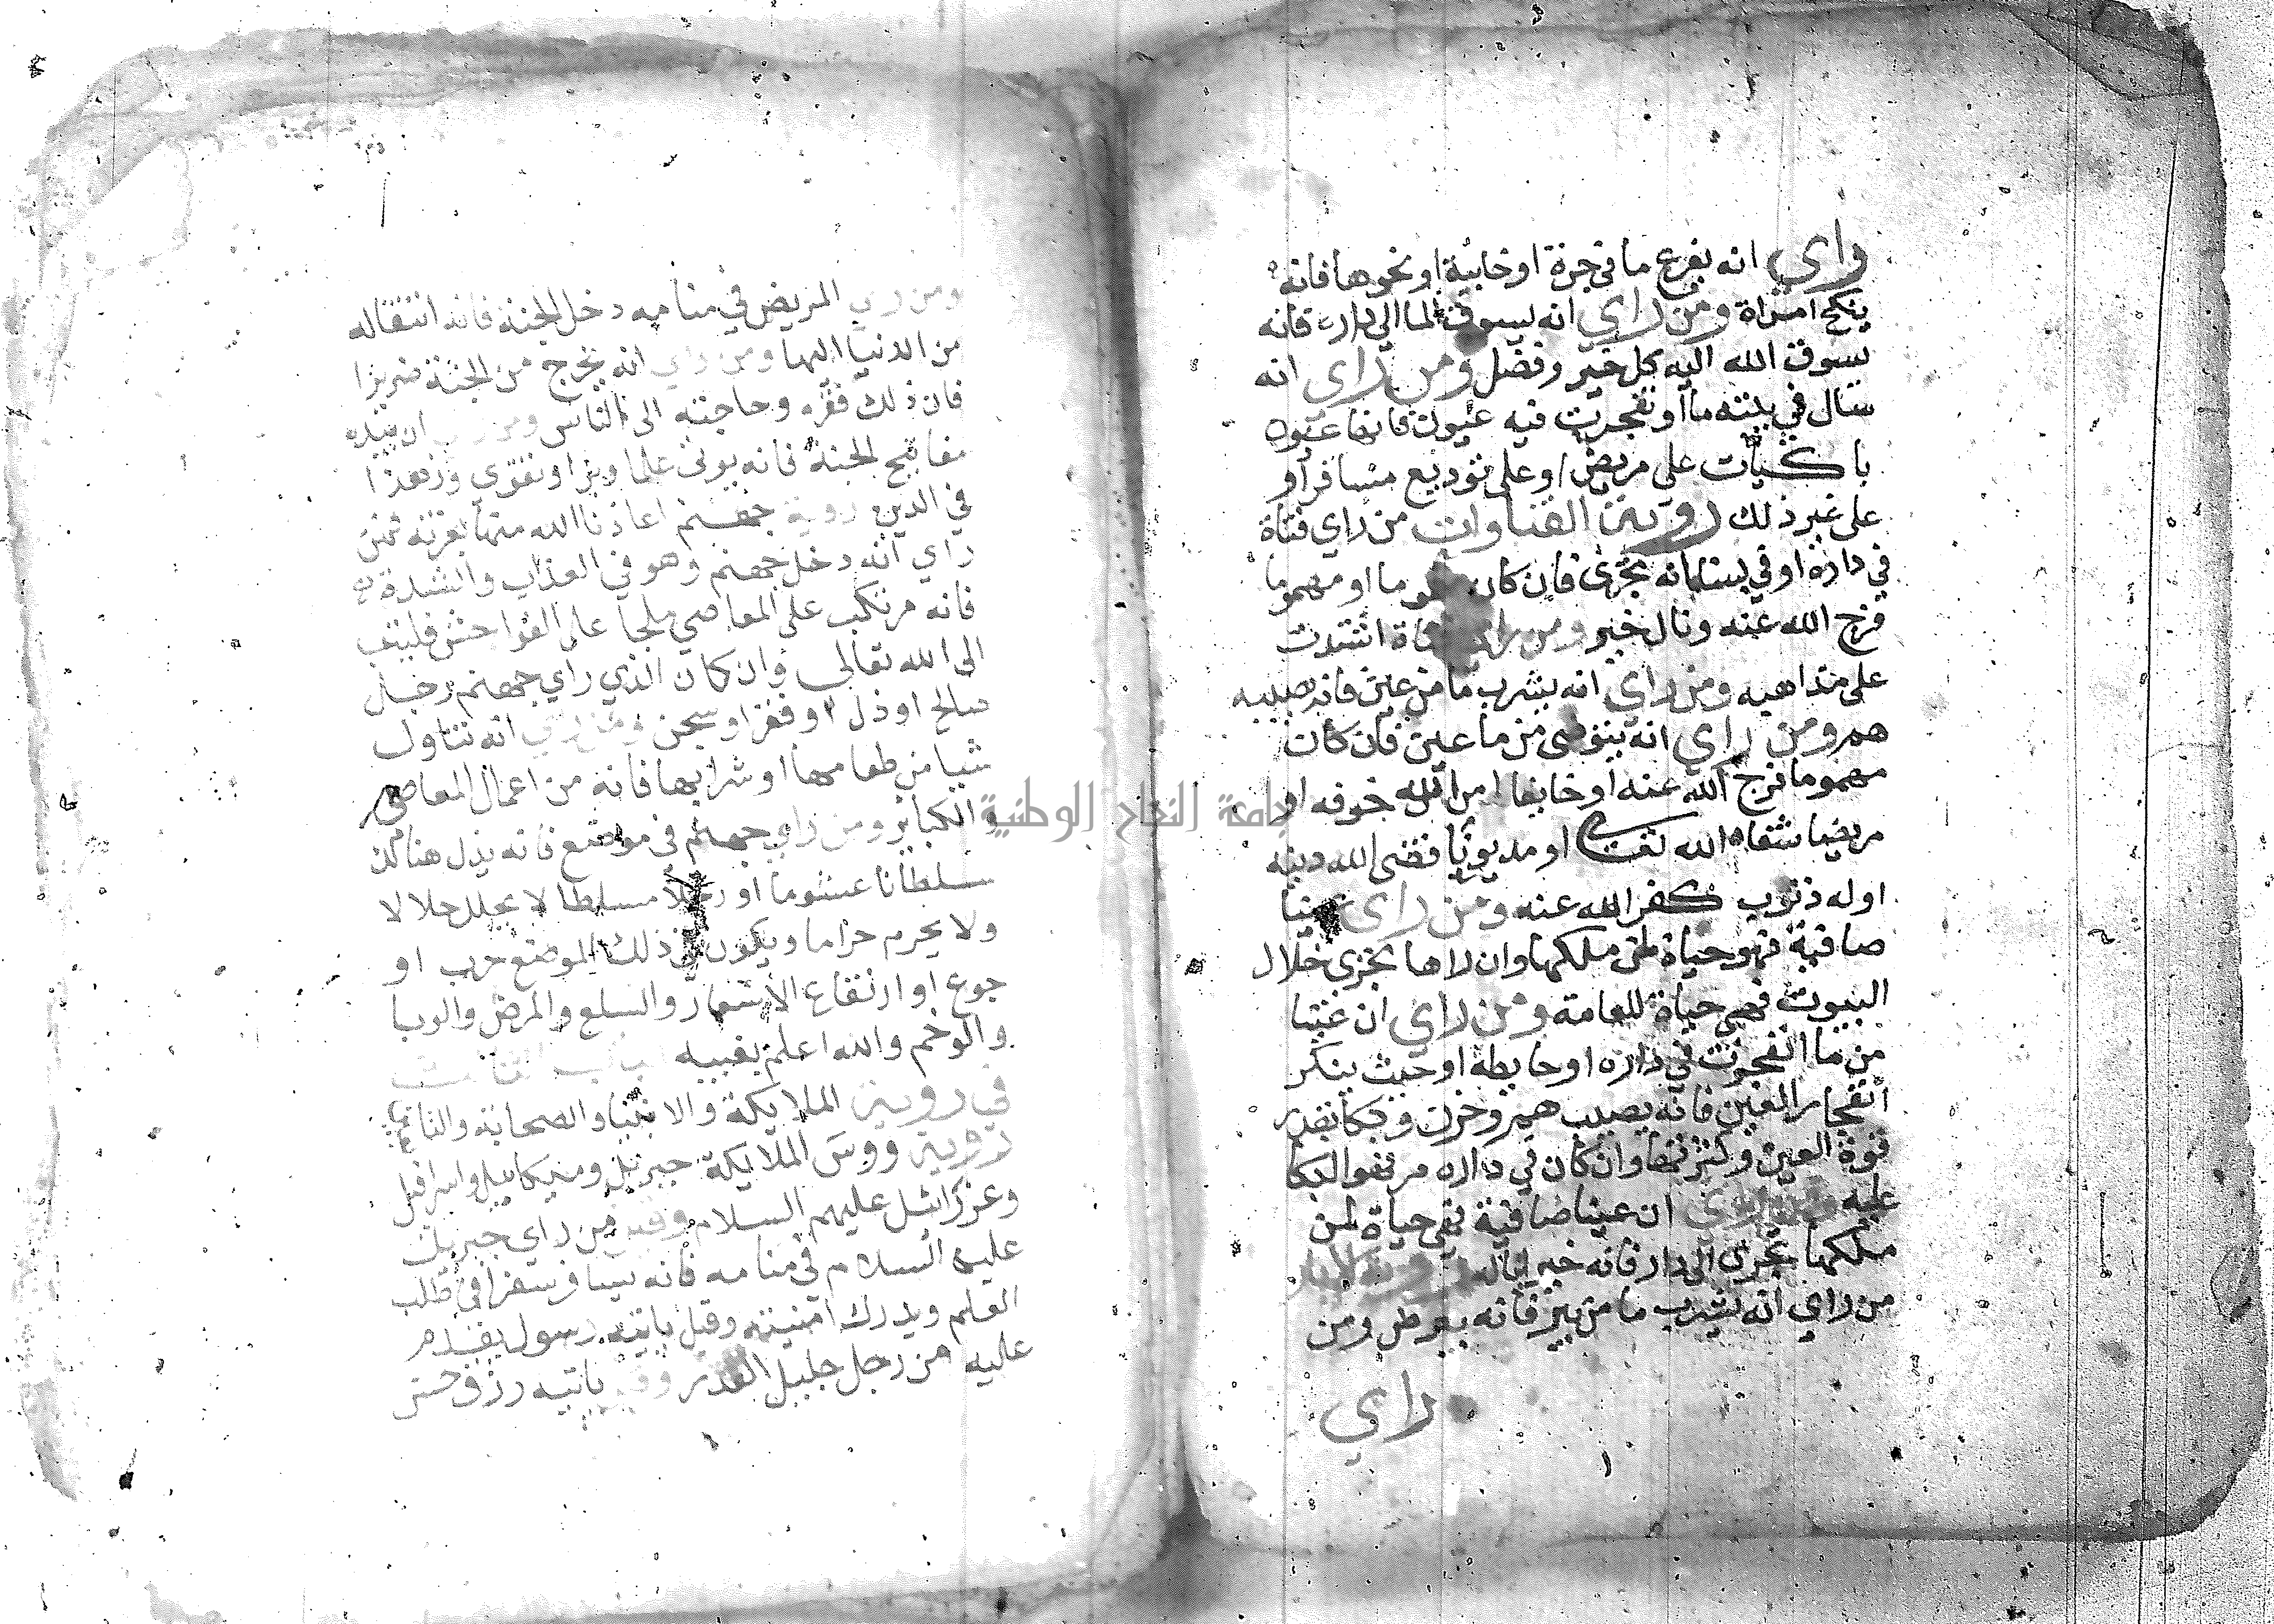 راي انه يفرغ ما في جرة او خابية او نحوها فانه
ينكح امراة ومن راي انه يسوق الما الي داره فانه
يسوق الله اليه كل خير وفضل ومن راي انه
سال في بيته ما او تفجرت فيه عيون فانها عيون
باكيات على مريض او على توديع مسافر او
على غير ذلك روية القنوات من راي قناة
في داره او في بستانه تجري فان كان او مهموما
فرج الله عنه ونال خير ومن راي قناة انسدت
على مذاهبه ومن راي انه يشرب ما من عين فانه يصيبه
هم ومن راي انه يتوضى من ما عين فان كان
مهموما فرج الله عنه او خايفا امن الله خوفه او
مريضا شفاه الله تعالى او مديونا قضى الله دينه
اوله ذنوب كفر الله عنه ومن راى عينا
صافية فهو حياة لمن ملكها وان راها تجري خلال
البيوت فهي حياة للعامة ومن راي ان عينا
من ما انفجرت في داره او حايطه او حيث ينكر
انفجار العين فانه يصيب هم وحزن وبكا بقدر
قوة العين وان كان في داره مرضى والبكا
عليه ومن راي ان عينا صافية فهي حياة لمن
ملكها تجري الى دار فانه خير يناله روية الابار
من راي انه يشرب ما من بير فانه يمرض ومن
راي
ومن راي المريض في منامه دخل الجنة فانه انتقاله
من الدنيا اليها ومن راي انه يخرج من الجنة ضريرا
فان ذلك فقره وحاجته الى الناس ومن راي ان بيده
مفاتيح الجنة فانه يوتى علما وبرا وتقوي وزهدا
في الدين روية جهنم اعاذنا الله منها بعزته فمن
راي انه دخل جهنم وهو في العذاب والشدة
فانه مرتكب على المعاصي ملجا على الفواحش فليتب
الى الله تعالى وان كان الذي راي جهنم رجل
صالح او ذل او فقر او سجن ومن راي انه تناول
شيا من طعامها او شرابها فانه من اعمال المعاصي
والكباير ومن راي جهنم في موضع فانه ينزل هنالك
سلطانا غشوما او رجلا مسلطا لا يحلل حلالا
ولا يحرم حراما ويكون في ذلك الموضع حرب او
جوع او ارتفاع الاسعار والسلع والمرض والوبا
والوخم والله اعلم بغيبه
في روية الملايكة والانبيا والصحابة
روية الملايكة جبريل وميكاييل واسرافيل
وعزرائيل عليهم السلام من راي جبريل
عليه السلام في منامه فانه يسافر سفرا في طلب
العلم ويدرك امنيته وقيل ياتيه رسول يقدم
عليه من رجل جليل القدر وقيل ياتيه رزق حسن
جامعة النجاح الوطنية